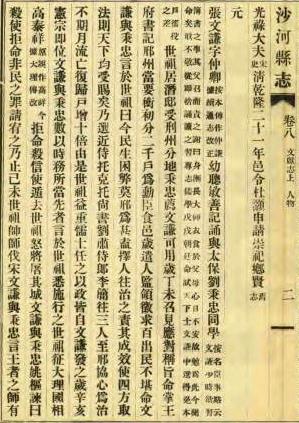 沙河縣志 卷八 文獻志上 人物 二
光祿大夫宋史清乾隆二十一年邑令杜灝申請崇祀鄉賢舊志
元
張文謙字仲卿幼聰敏善記誦與太保劉秉忠同學按名臣事略云文謙少時欲習
世祖居潛邸受邢州分地秉忠薦文謙可用歲丁未召見應對稱旨命掌王
府書記邢州當要衝初分二千戶為勳臣食邑歲遣人監領徵求百出民不堪命文
謙與秉忠言於世祖曰今民生困弊莫邢為甚盍擇人往治之責其成效使四方取
法則天下均受賜矣乃選近侍托克托尚書劉肅侍郎李簡往三人至邢協心為治
不期月流亡復歸戶增十倍由是世祖益重儒士任之以政皆自文謙發之歲辛亥
憲宗即位文謙與秉忠數以時務所當先者言於世祖悉施行之世祖征大理國相
高泰祥原誤作高祥據大理傳改拒命殺信使遁去世祖怒將屠其城文謙與秉忠姚樞諫曰
殺使拒命非民之罪請宥之乃止己未世祖帥師伐宋文謙與秉忠言王者之師有